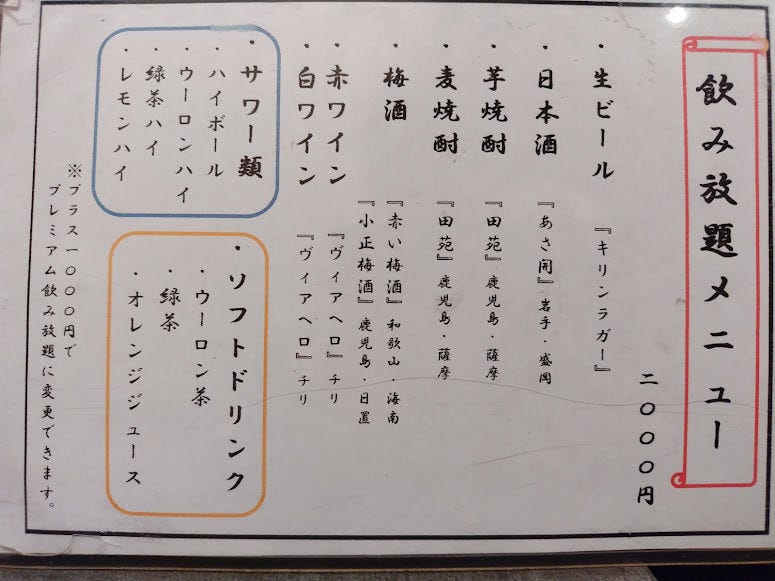 飲み放題メニュー
二〇〇〇円
・生ビール 『キリンラガー』
・日本酒 『あさ開』岩手・盛岡
・芋焼酎 『田苑』鹿児島・薩摩
・麦焼酎 『田苑』鹿児島・薩摩
・梅酒 『赤い梅酒』和歌山・海南
『小正梅酒』鹿児島・日置
・赤ワイン 『ヴィアヘロ』チリ
・白ワイン 『ヴィアヘロ』チリ
・サワー類
・ハイボール
・ウーロンハイ
・緑茶ハイ
・レモンハイ
・ソフトドリンク
・ウーロン茶
・緑茶
・オレンジジュース
※プラス一〇〇〇円で
プレミアム飲み放題に変更できます。